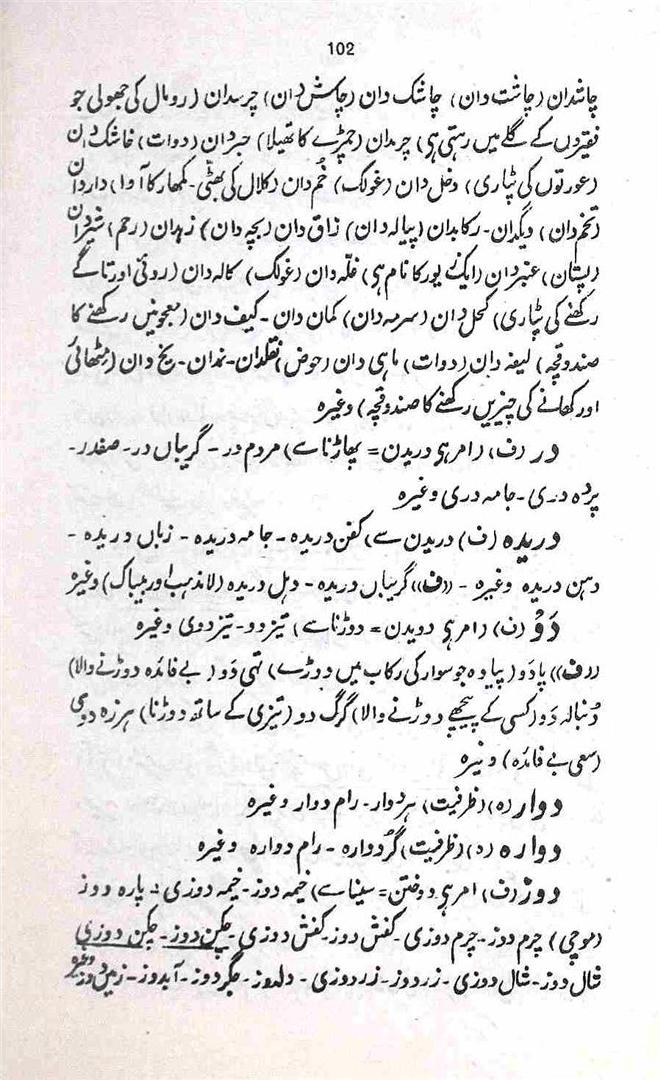 102
چاشدان (چاشت دان) چاشک دان (چاکش دان) چرسدان (رومال کی جھولی جو
فقیروں کے گلے میں رہتی ہی) چرمدان (چمڑے کا تھیلا) حبردان (دوات) خاشک دان
(عورتوں کی پٹاری) دخل دان (غولک) خُم دان (کلال کی بھٹی۔ کمھار کا آوا) داردان
(تخم دان) دیگدان۔ رکابدان (پیالہ دان) زاق دان (بچہ دان) زہدان (رحم) شیردان
(پستان) عنبردان (ایک یور کا نام ہی) غلّہ دان (غولک) کالہ دان (روئی اور تاگے
رکھنے کی پٹاری) کحل دان (سرمہ دان) کمان دان۔ کیف دان (معجونیں رکھنے کا
صندوقچہ) لیغہ دان (دوات) ماہی دان (حوض) نقلدان۔ نمدان۔ یخ دان (مٹھائی
اور کھانے کی چیزیں رکھنے کا صندوقچہ) وغیرہ
در (ف) (امر ہی دریدن = پھاڑنا سے) مردم در۔ گریباں در۔ صفدر۔
پردہ دری۔ جامہ دری وغیرہ
دریدہ (ف) دریدن سے) کفن دریدہ۔ جامہ دریدہ۔ زباں دریدہ۔
دہن دریدہ وغیرہ۔ ((ف)) گریباں دریدہ۔ دہل دریدہ (لامذہب اور بیباک) وغیرہ
دَوْ (ف) (امر ہی دویدن = دوڑنا سے) تیز دو۔ تیز دوی وغیرہ
((ف)) پادَو (پیادہ جو سوار کی رکاب میں دوڑے) تہی دَو (بے فائدہ دوڑنے والا)
دُنبالہ دَو (کسی کے پیچھے دوڑنے والا) گرگ دو (تیزی کے ساتھ دوڑنا) ہرزہ دوی
(سعی بے فائدہ) وغیرہ
دوار (ہ) (ظرفیت) ہردوار۔ رام دوار وغیرہ
دوارہ (ہ) (ظرفیت) گُردوارہ۔ رام دوارہ وغیرہ
دوز (ف) امر ہی دوختن = سینا سے) خیمہ دوز۔ خیمہ دوزی۔ پارہ دوز
(موچی) چرم دوز۔ چرم دوزی۔ کفش دوز۔ کفش دوزی۔ چکن دوز۔ چکن دوزی
شال دوز۔ شال دوزی۔ زردوز۔ زردوزی۔ دلدوز۔ جگر دوز۔ آبدوز۔ زمین دوز وغیرہ